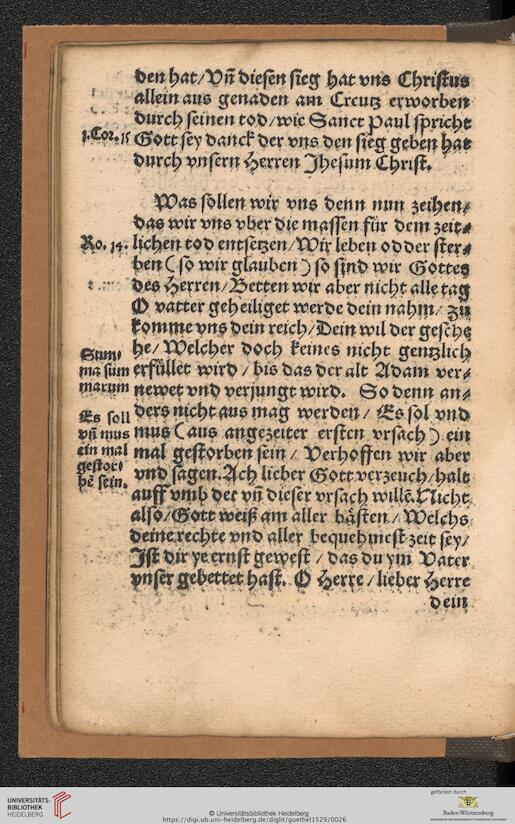 den hat/Vñ diesen sieg hat vns Christus
allein aus genaden am Creutz erworben
durch seinen tod/wie Sanct Paul spricht
1.Cor.15 Gott sey danck der vns den sieg geben hat
durch vnsern Herren Jhesum Christ.
Was sollen wir vns denn nun zeihen/
das wir vns vber die massen für dem zeit⸗
Ro. 14. lichen tod entsetzen/Wir leben odder ster⸗
ben (so wir glauben) so sind wir Gottes
des Herren/Betten wir aber nicht alle tag
O vatter geheiliget werde dein nahm/ zu
komme vns dein reich/Dein wil der gesche
he/Welcher doch keines nicht gentzlich
erfüllet wird/bis das der alt Adam ver⸗
newet vnd verjungt wird. So denn an⸗
ders nicht aus mag werden/ Es sol vnd
mus (aus angezeiter ersten vrsach) ein
mal gestorben sein/ Verhoffen wir aber
vnd sagen. Ach lieber Gott verzeuch/halt
auff vmb der vñ dieser vrsach willē. Nicht
also/Gott weiß am aller bästen/Welchs
deine rechte vnd aller bequehmest zeit sey/
Jst dir ye ernst gewest/das du ym Vater
vnser gebettet hast. O Herre/lieber Herre
dein
Sum⸗
ma sum
marum
Es soll
vñ mus
ein mal
gestor⸗
bē sein.
UNIVERSITÄTS-
BIBLIOTHEK
HEIDELBERG
© Universitätsbibliothek Heidelberg
https://digi.ub.uni-heidelberg.de/diglit/guethel1529/0026
gefördert durch
Baden-Württemberg